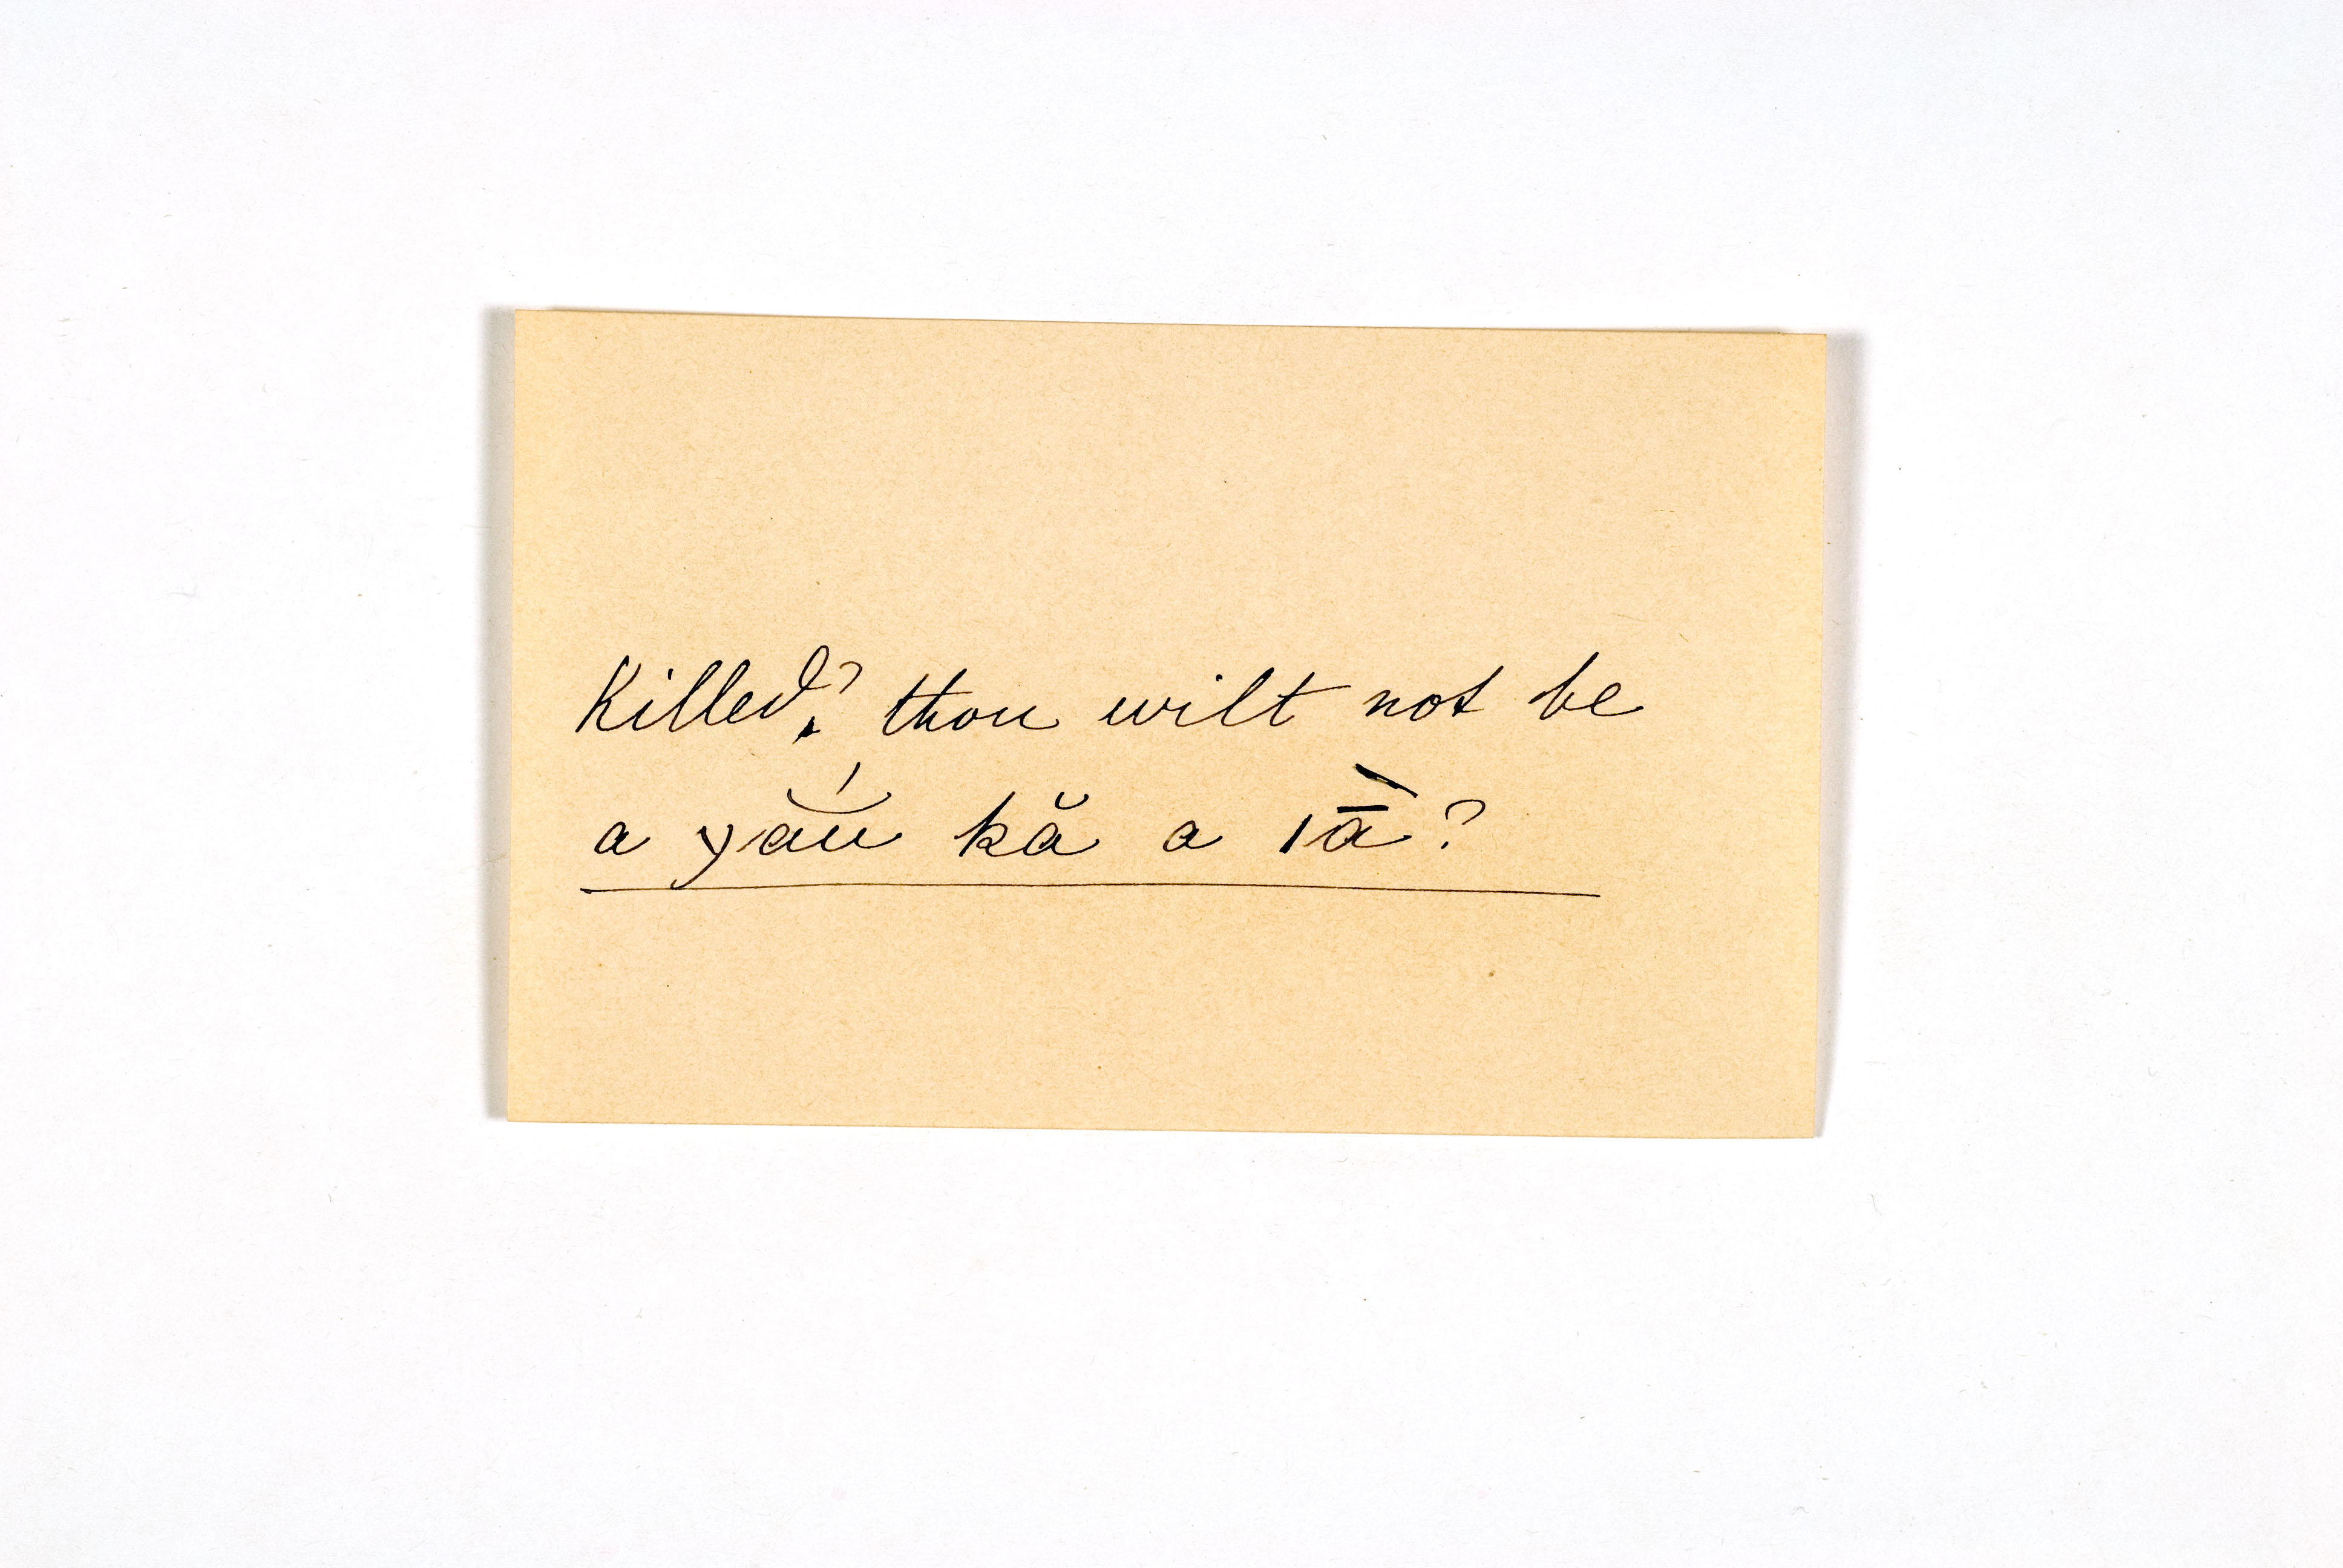 Killed? thou wilt not be
a yău̇́ kă a ıā̀?